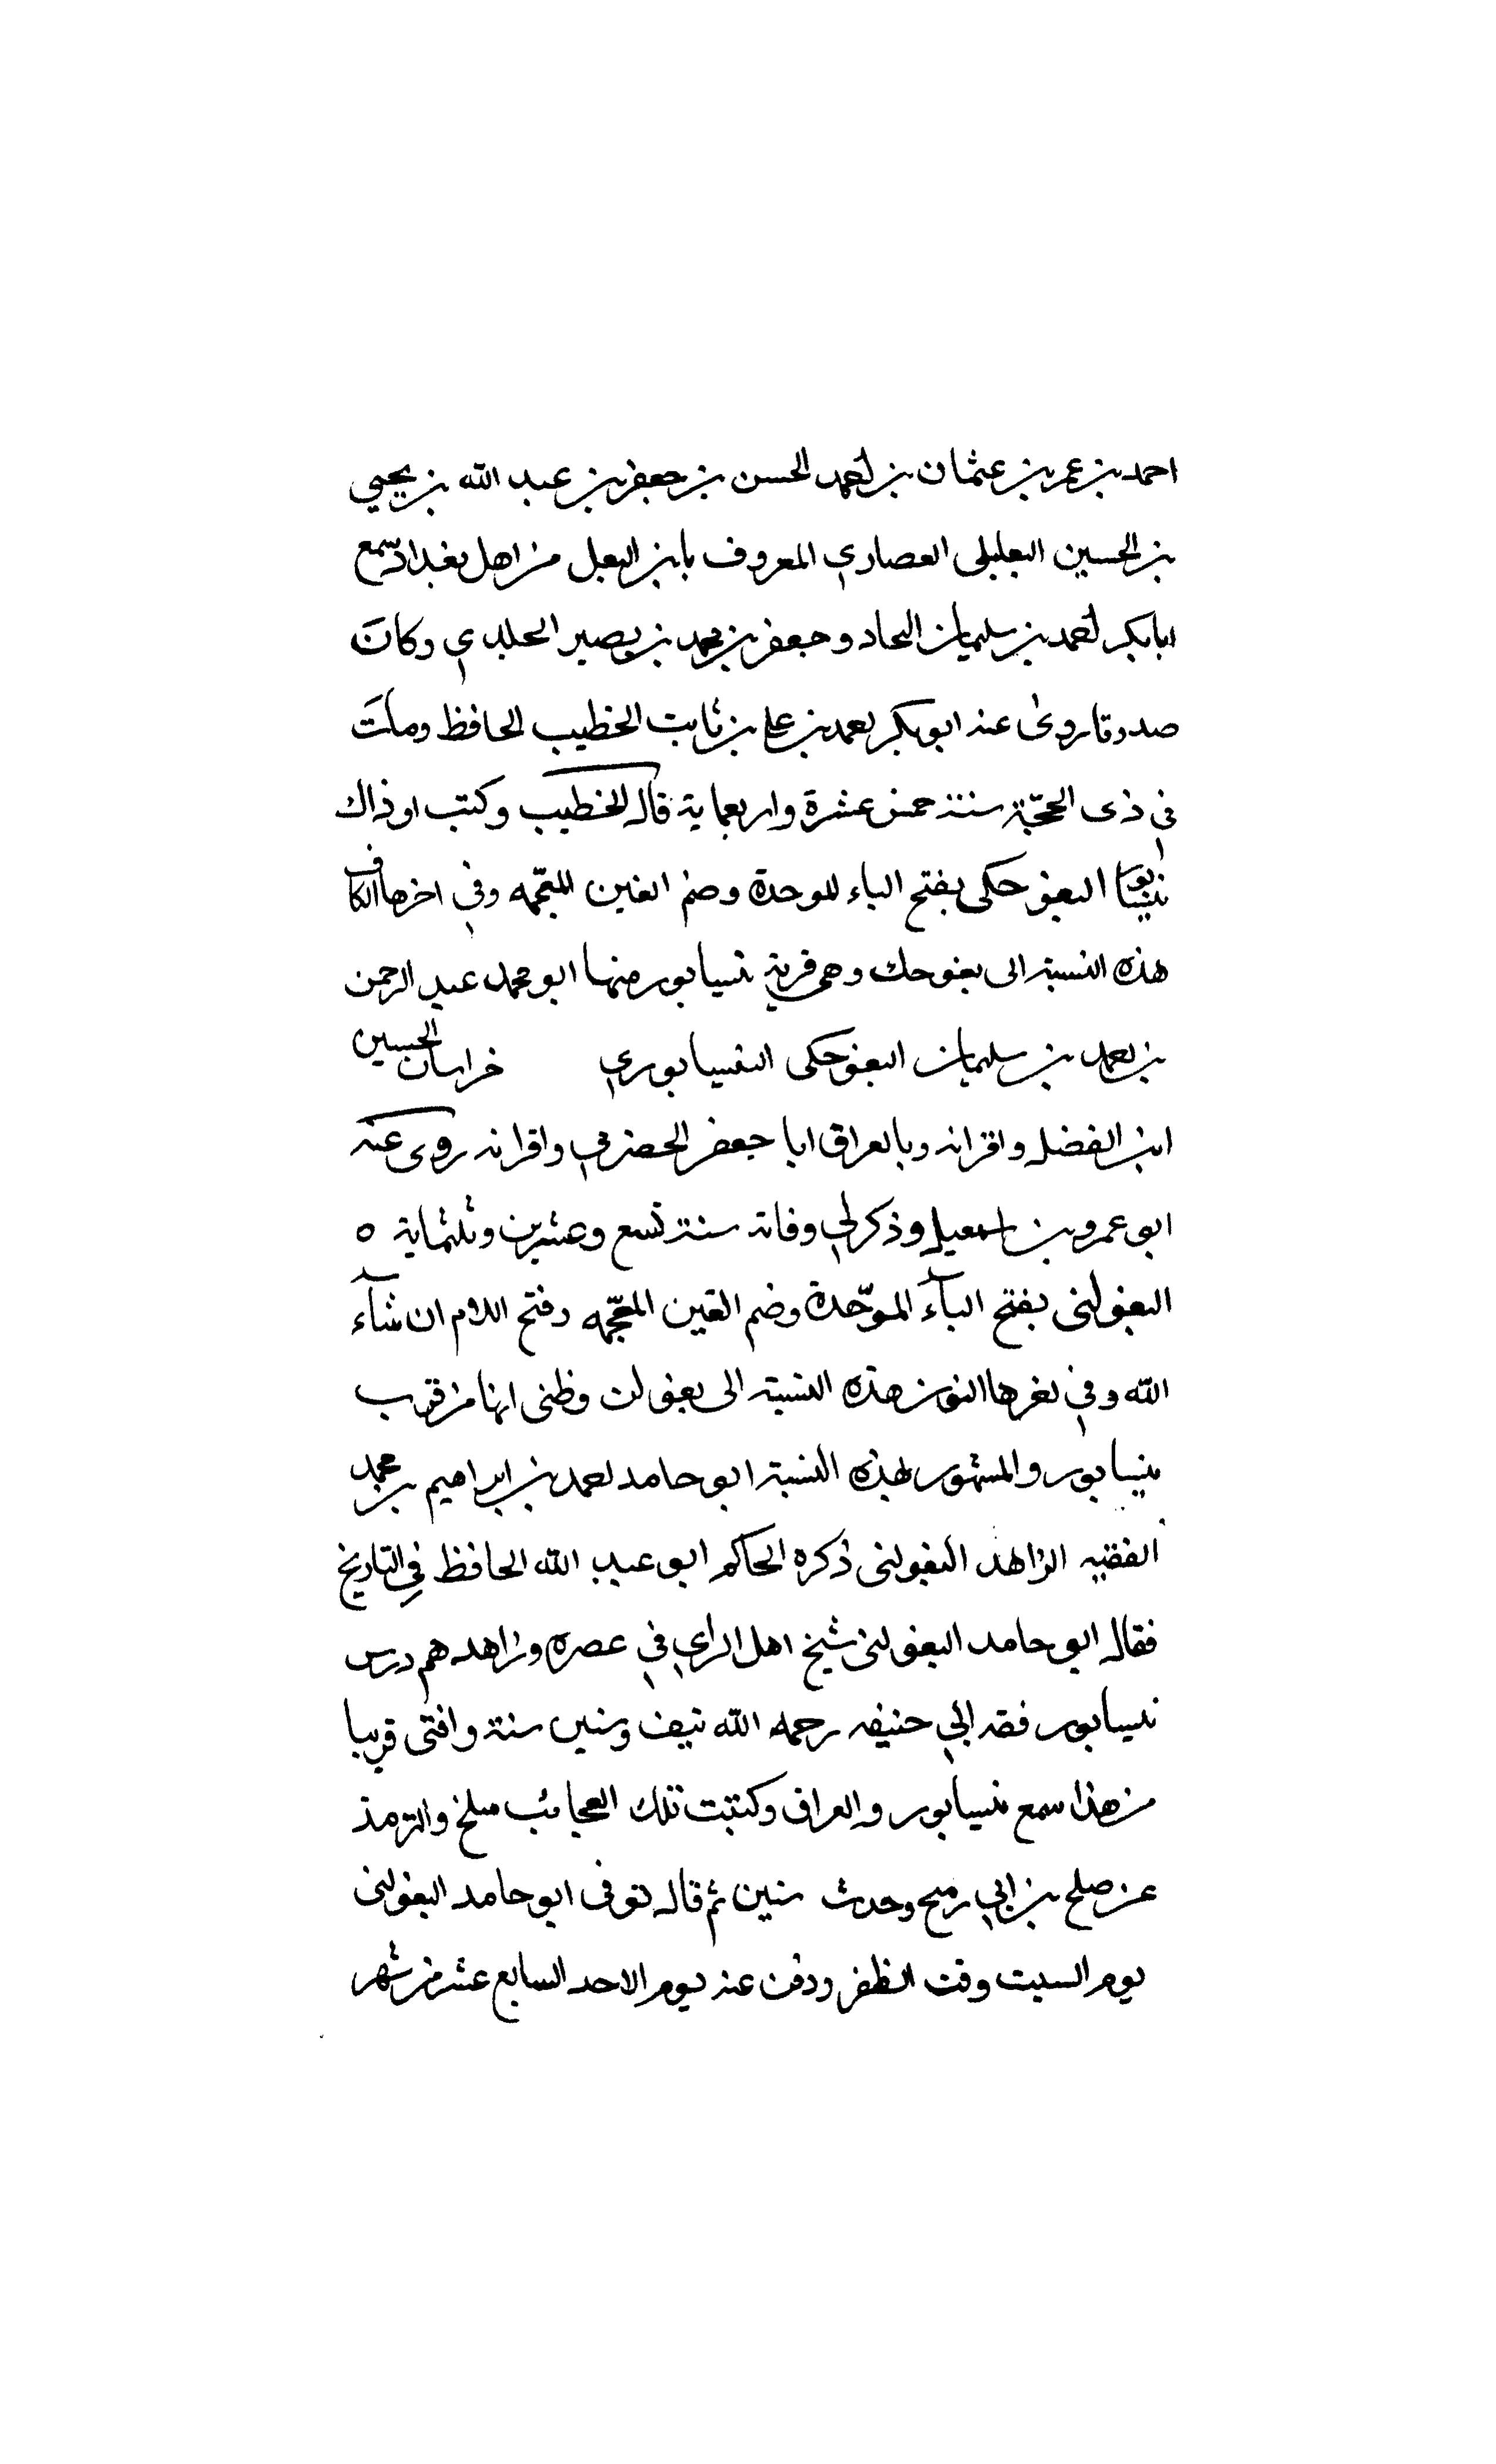 احمد بن عمر بن عثمان بن احمد الحسن بن جعفر بن عبد الله بن يحيي
بن الحسين البغلبلى العصاري المعروف بابن البغل من اهل بغداد سمع
ابابكر احمد بن سليمان النجاد وجعفر بن محمد بن نصير الخلدي وكان
صدوقا روىٰ عنه ابوبكر احمد بن على بن ثابت الخطيب الحافظ ومات
في ذى الحجّة سنة خمس عشرة واربعماية قال الخطيب وكتب اوذاك
البغوحكى بفتح الباء الموحدة وضم الغين المعجّمه وفي اخرها الكاف
هذه النسبة الى بغوحك وهى قرية نيسابور منها ابو محمد عبد الرحمن
بن احمد بن سليمان البغوحكى النيسابوري خراسان الحسين
ابن الفضل واقرانه وبالعراق ابا جعفر الحضرمي واقرانه روى عنه
ابو عمرو بن اسمعيل وذكر لي وفاته سنة تسع وعشرين وثلثماية ه
البغولنى بفتح البآء الموحّدة وضم الغين المعجّمه وفتح اللام ان شآء
الله وفي اخرها النون هذه النسبة الى بغولن وظنى انها من قرب
نيسابور والمشهور بهذه النسبة ابو حامد احمد بن ابراهيم بن محمد
الفقيه الزاهد البغولنى ذكره الحاكم ابو عبد الله الحافظ في التاريخ
فقال ابو حامد البغولنى شيخ اهل الراي في عصره وزاهدهم درس
نيسابور فقه ابي حنيفه رحمه الله نيف وستين سنة وافتى قريبا
من هذا سمع نيسابور والعراق وكتبت تلك العجائب ببلخ والترمذ
عن صلح بن ابي رميح وحدث سنين ثم قال توفى ابو حامد البغولنى
يوم السبت وقت الظفر ودفن عنه يوم الاحد السابع عشر من شهر